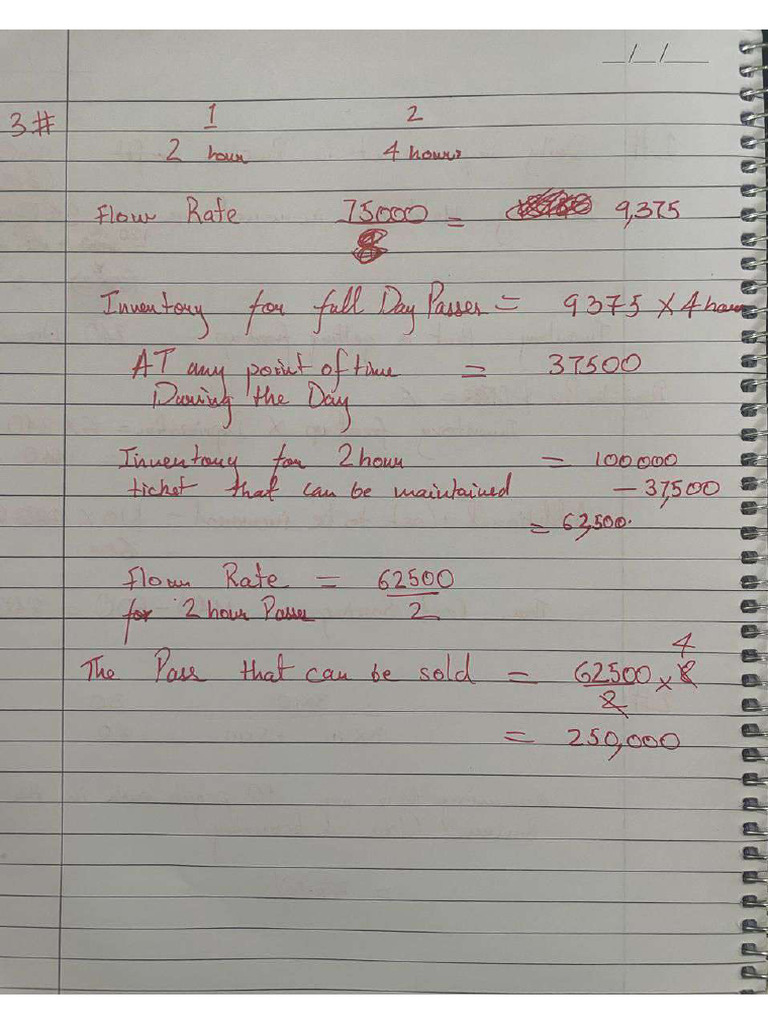 _/_/__
3# 1 2
2 hour 4 hours
Flow Rate 75000/8 = 9,375
Inventory for full Day Passes = 9375 X 4 hour
AT any point of time = 37500
During the Day
Inventory for 2 hour = 100000
ticket that can be maintained - 37,500
= 62,500.
Flow Rate = 62500/2
for 2 hour Passes
The Pass that can be sold = 62500/2 x 8 4
= 250,000